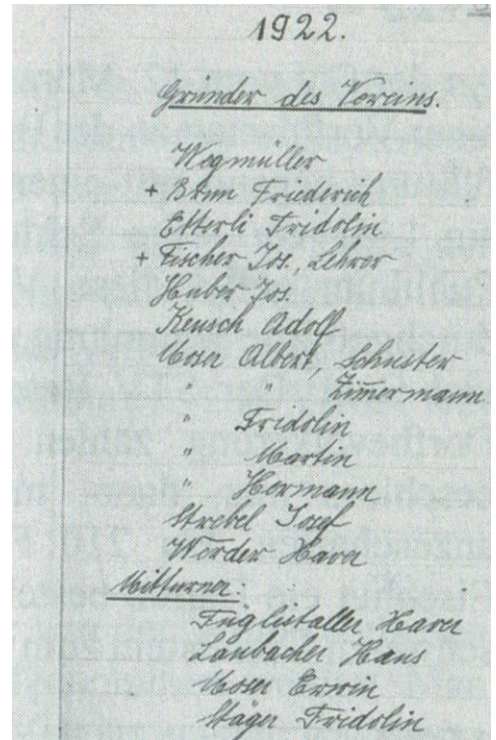 1922.
Gründer des Vereins.
Wegmüller
+ Brun Friederich
Etterli Fridolin
+ Fischer Jos., Lehrer
Huber Jos.
Keusch Adolf
Moser Albert, Schuster
" " Zimermann
" Fridolin
" Martin
" Hermann
Strebel Josef
Werder Xaver
Mitturner:
Füglistaller Xaver
Laubacher Hans
Moser Erwin
Stäger Fridolin